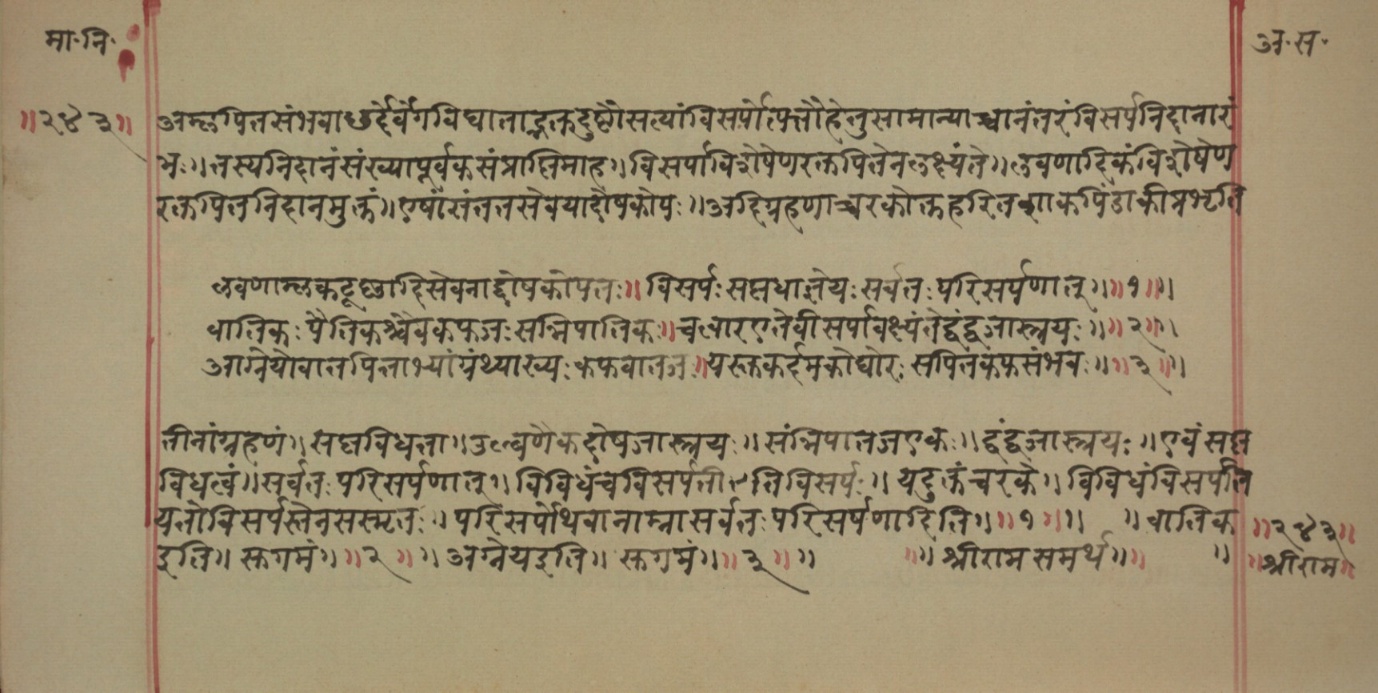 मा·नि·
अ·स·
॥२४३॥
अम्लपित्तसंभवाछर्देर्वेगविघाताद्रक्तदुष्टौसत्यांविसर्पोत्पत्तौहेतुसामान्याच्चानंतरंविसर्पनिदानारं
भः॥तस्यनिदानंसंख्यापूर्वकसंप्राप्तिमाह॥विसर्पाविशेषेणरक्तपित्तेनलक्ष्यंते॥लवणादिकंविशेषेण
रक्तपित्तनिदानमुक्तं॥एषांसंततसेवयादोषकोपः॥आदिग्रहणाच्चरकोक्तहरितशाकपिंडाकीप्रभृति
लवणाम्लकटूष्णादिसेवनाद्दोषकोपतः॥विसर्पःसप्तधाज्ञेयःसर्वतःपरिसर्पणात्॥॥१॥॥
वातिकःपैत्तिकश्चैवकफजःसन्निपातिकः॥चत्वारएतेवीसर्पावक्ष्यंतेद्वंद्वजास्त्रयः॥॥२॥॥
आग्नेयोवातपित्ताभ्यांग्रंथ्याख्यःकफवातजः॥यस्तुकर्दमकोघोरःसपित्तकफसंभवः॥॥३॥॥
तीनांग्रहणं॥सप्तविधता॥उल्बणैकदोषजास्त्रयः॥संन्निपातजएकः॥द्वंद्वजास्त्रयः॥एवंसप्त
विधत्वं॥सर्वतःपरिसर्पणात्॥विविधंचविसर्पतीतिविसर्पः॥यदुक्तंचरके॥विविधंविसर्पति
यतोविसर्पस्तेनसस्मृतः॥परिसर्पोथवानाम्नासर्वतःपरिसर्पणादिति॥॥१॥॥ ॥वातिक
इति॥सुगमं॥॥२॥॥अग्नेयइति॥सुगमं॥॥३॥॥ ॥॥श्रीरामसमर्थ॥॥ ॥
॥२४३॥
॥श्रीराम॥